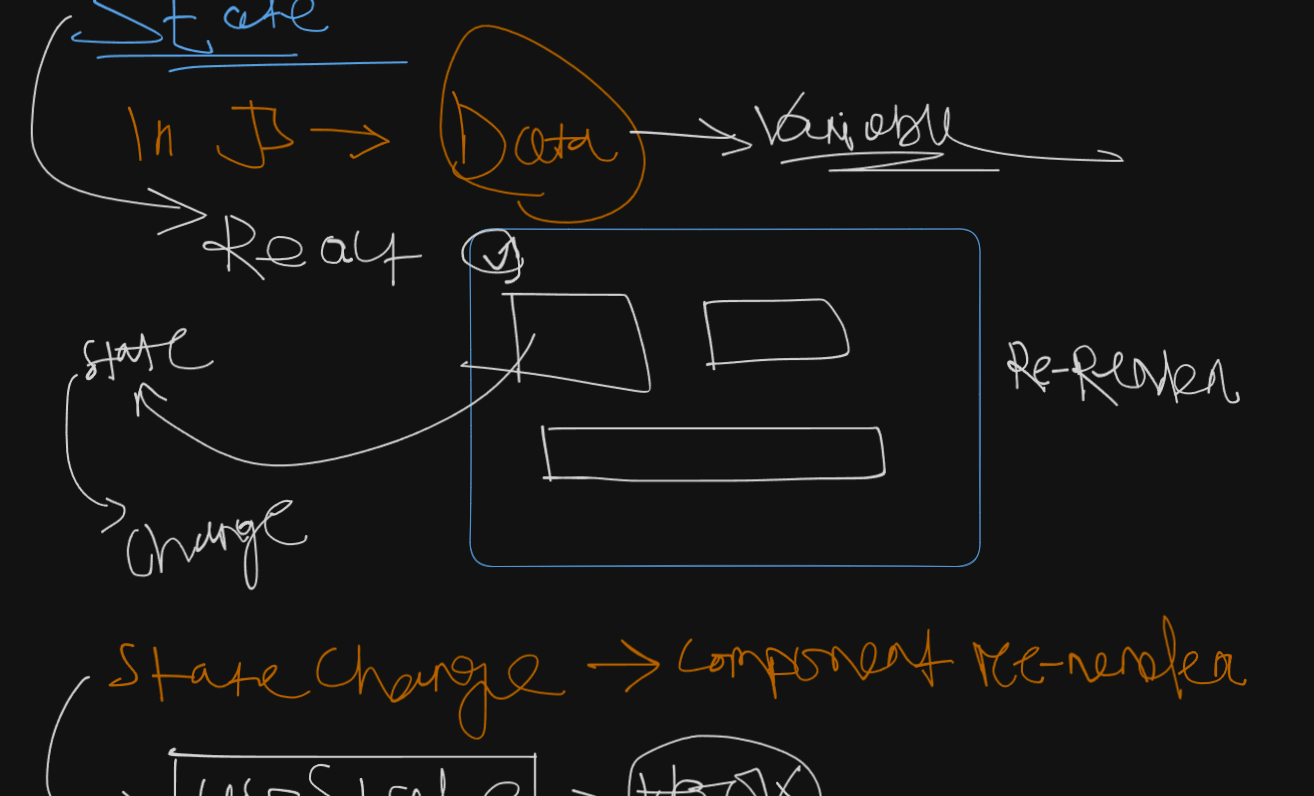 State
In JS → Data → Variable
React
state
Re-Render
Change
State Change → Component re-render
useState → Hook